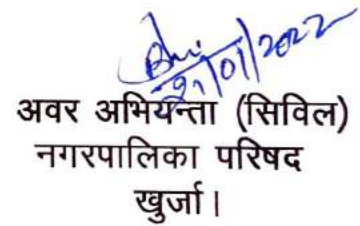 21/01/2022
अवर अभियन्ता (सिविल)
नगरपालिका परिषद
खुर्जा।